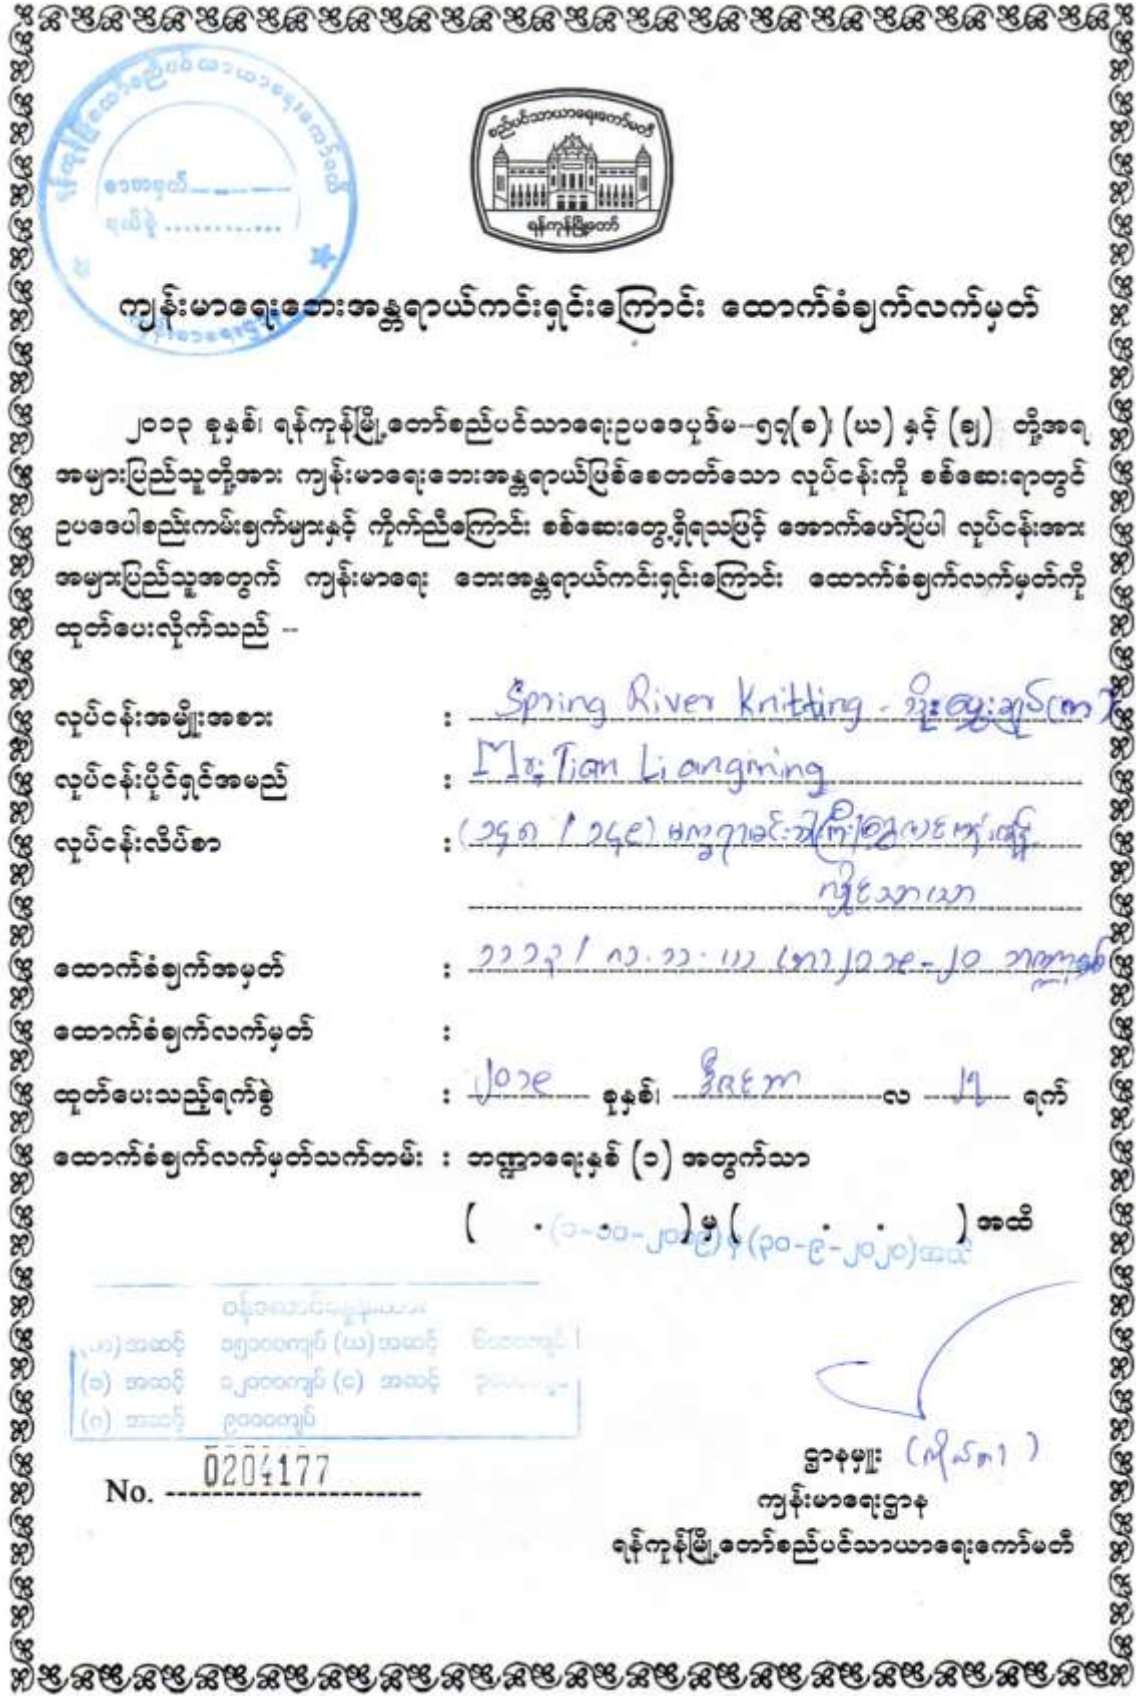 ရန်ကုန်မြို့တော်စည်ပင်သာယာရေးကော်မတီ
စာအမှတ်
ရယ်စွဲ ............
စည်ပင်သာယာရေးကော်မတီ
ရန်ကုန်မြို့တော်
ကျန်းမာရေးဘေးအန္တရာယ်ကင်းရှင်းကြောင်း ထောက်ခံချက်လက်မှတ်
၂၀၁၃ ခုနှစ်၊ ရန်ကုန်မြို့တော်စည်ပင်သာရေးဥပဒေပုဒ်မ-၅၇(ခ)၊ (ဃ) နှင့် (ဈ) တို့အရ
အများပြည်သူတို့အား ကျန်းမာရေးဘေးအန္တရာယ်ဖြစ်စေတတ်သော လုပ်ငန်းကို စစ်ဆေးရာတွင်
ဥပဒေပါစည်းကမ်းချက်များနှင့် ကိုက်ညီကြောင်း စစ်ဆေးတွေ့ရှိရသဖြင့် အောက်ဖော်ပြပါ လုပ်ငန်းအား
အများပြည်သူအတွက် ကျန်းမာရေး ဘေးအန္တရာယ်ကင်းရှင်းကြောင်း ထောက်ခံချက်လက်မှတ်ကို
ထုတ်ပေးလိုက်သည် --
လုပ်ငန်းအမျိုးအစား : Spring River Knitting - သိုးမွှေးချုပ်(က)
လုပ်ငန်းပိုင်ရှင်အမည် : Mr; Tian Liangming
လုပ်ငန်းလိပ်စာ : (၁၄၈ / ၁၄၉)
လှိုင်သာယာ
ထောက်ခံချက်အမှတ် : ၂၀၁၉-၂၀ ဘဏ္ဍာနှစ်
ထောက်ခံချက်လက်မှတ် :
ထုတ်ပေးသည့်ရက်စွဲ : ၂၀၁၉ ခုနှစ်၊ ဒီဇင်ဘာ လ ၂၅ ရက်
ထောက်ခံချက်လက်မှတ်သက်တမ်း : ဘဏ္ဍာရေးနှစ် (၁) အတွက်သာ
( . . ) မှ ( . . ) အထိ
(၁-၁၀-၂၀၁၉) မှ (၃၀-၉-၂၀၂၀) အထိ
ဝန်ဆောင်မှုနှုန်းထား
(က) အဆင့် ၁၅၀၀၀ကျပ် (ဃ) အဆင့် ၆၀၀၀ကျပ်
(ခ) အဆင့် ၁၂၀၀၀ကျပ် (င) အဆင့်
(ဂ) အဆင့် ၉၀၀၀ကျပ်
No. 0204177
ဌာနမှူး (ကိုယ်စား)
ကျန်းမာရေးဌာန
ရန်ကုန်မြို့တော်စည်ပင်သာယာရေးကော်မတီ